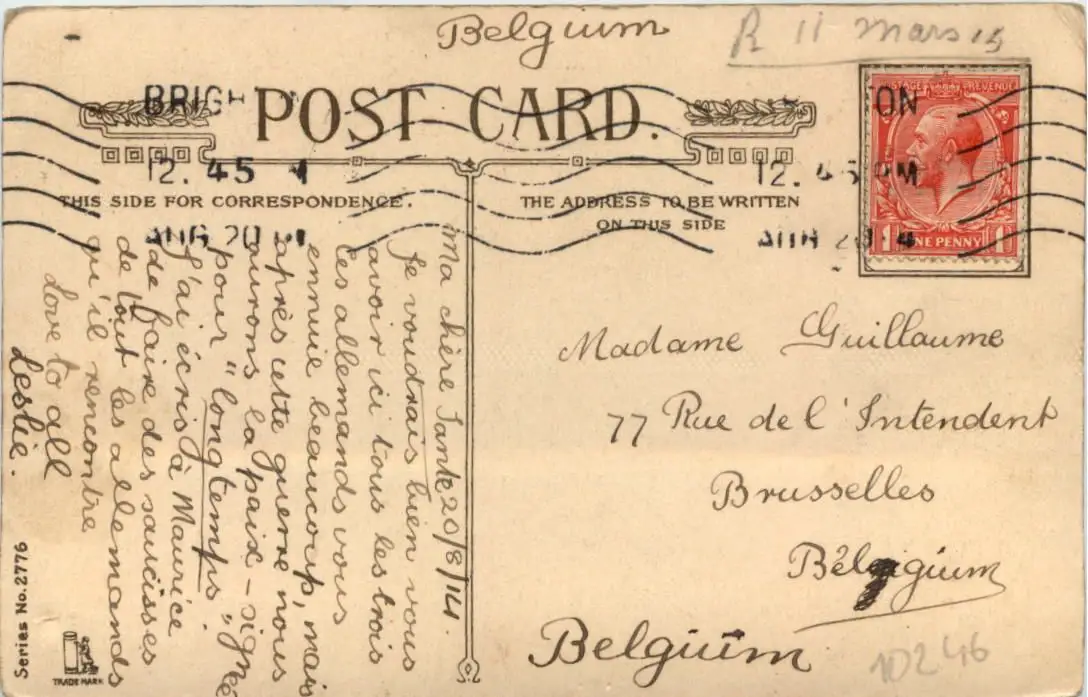 Belgium
R 11 mars 15
BRIGH
ON
POST CARD.
12.45 M
12.45 PM
POSTAGE REVENUE
THIS SIDE FOR CORRESPONDENCE.
THE ADDRESS TO BE WRITTEN
ON THIS SIDE
AUG 20
AUG 20 4
1 ONE PENNY 1
Ma chère Tante 20/8/14.
Je voudrais bien vous
avoir ici tous les trois
Les allemands vous
ennuie beaucoup, mais
après cette guerre nous
aurons la paix - signée
pour "longtemps".
J'ai écris à Maurice
de faire des saucisses
de tout les allemands
qu'il rencontre
Love to all
Leslie.
Madame Guillaume
77 Rue de l'Intendent
Brusselles
Bélgium
Belgium
10246
Series No. 2776
TRADE MARK